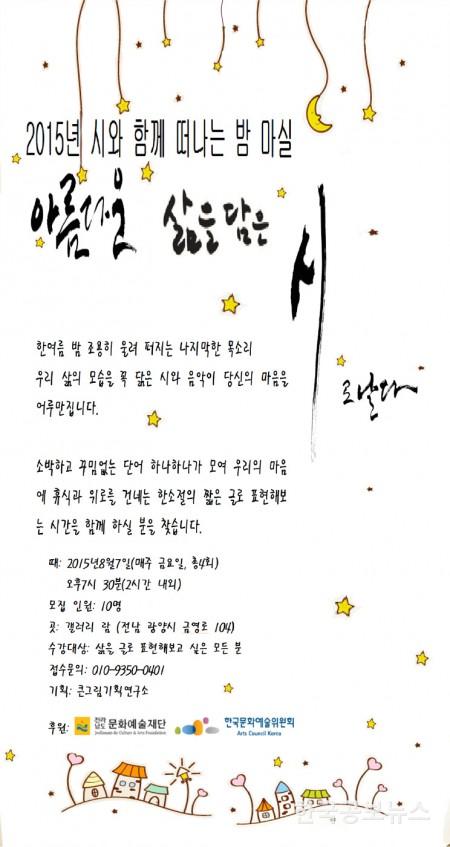 2015년 시와 함께 떠나는 밤 마실
아름다운 삶을 담은 시
로 날다
한여름 밤 조용히 울려 퍼지는 나지막한 목소리
우리 삶의 모습을 꼭 닮은 시와 음악이 당신의 마음을
어루만집니다.
소박하고 꾸밈없는 단어 하나하나가 모여 우리의 마음
에 휴식과 위로를 건네는 한소절의 짧은 글로 표현해보
는 시간을 함께 하실 분을 찾습니다.
때: 2015년8월7일(매주 금요일, 총4회)
오후7시 30분(2시간 내외)
모집 인원: 10명
곳: 갤러리 람 (전남 광양시 금영로 104)
수강대상: 삶을 글로 표현해보고 싶은 모든 분
접수문의: 010-9350-0401
기획: 큰그림기획연구소
후원: 전라남도 문화예술재단 한국문화예술위원회
Jeollanam-do Culture & Arts Foundation Arts Council Korea
한국공보뉴스